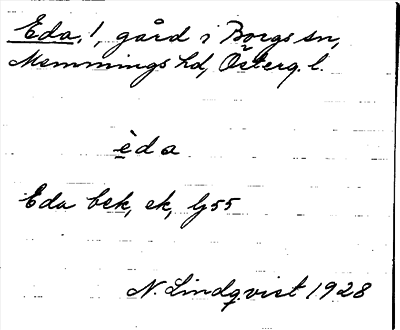 Eda, !, gård i Borgs sn,
Memmings hd, Österg. l.
èda
Eda bek, ek, lj 55
N. Lindqvist 1928